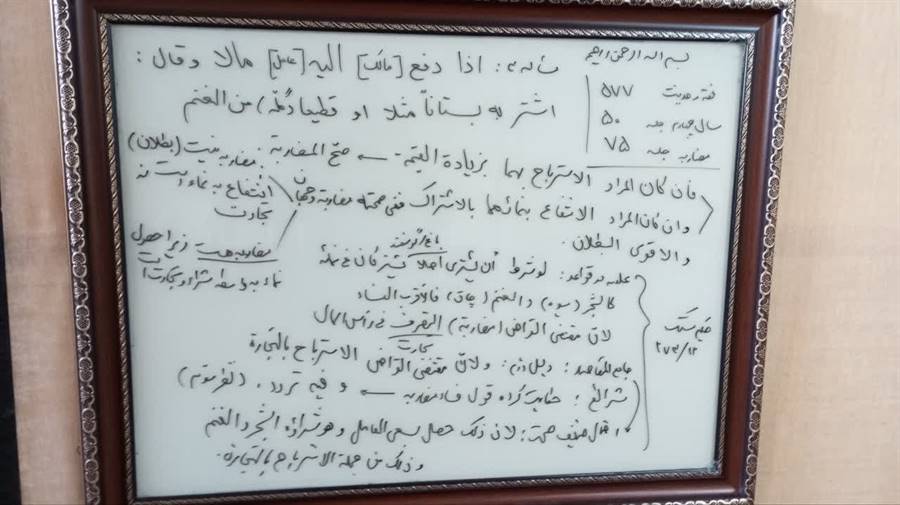 بسم الله الرحمن الرحیم
فقه رهدیت ۵۷۷
سال چهارم جلسه ۵۰
مضاربه جلسه ۷۵
مسأله: اذا دفع [مالک] الیه [عامل] مالا وقال:
اشتر به بستاناً مثلا او قطیعاً (گله) من الغنم
فان کان المراد الاسترباح بهما بزیادة القیمة ← صح المضاربة
وان کان المراد الانتفاع بنمائهما بالاشتراک ففی صحته مضاربة وجهان
والاقوی البطلان
مضاربه نیست (بطلان)
انتفاع به نماء است نه تجارت
مضاربه هست زیرا حصول
نماء به واسطه شراء و تجارت است
علامه در قواعد: لو شرط أن یشتری أصلا یشترکان فی نمائه
باغ/گوسفند
کالشجر (میوه) و الغنم (چاق) فالأقرب الفساد
لأن مقتضی القراض (مضاربه) التصرف فی رأس المال
تجارت
جامع المقاصد: دلیل دوم: ولأن مقتضی القراض الاسترباح بالتجارة
شرائع: حکایت کرده قول فساد مضاربه ← و فیه تردد.
احتمال ضعیف صحت: لان ذلک حصل بسعی العامل و هو شراؤه الشجر و الغنم
و ذلک من جملة الاسترباح بالتجارة.
۲۷۳/۱۲